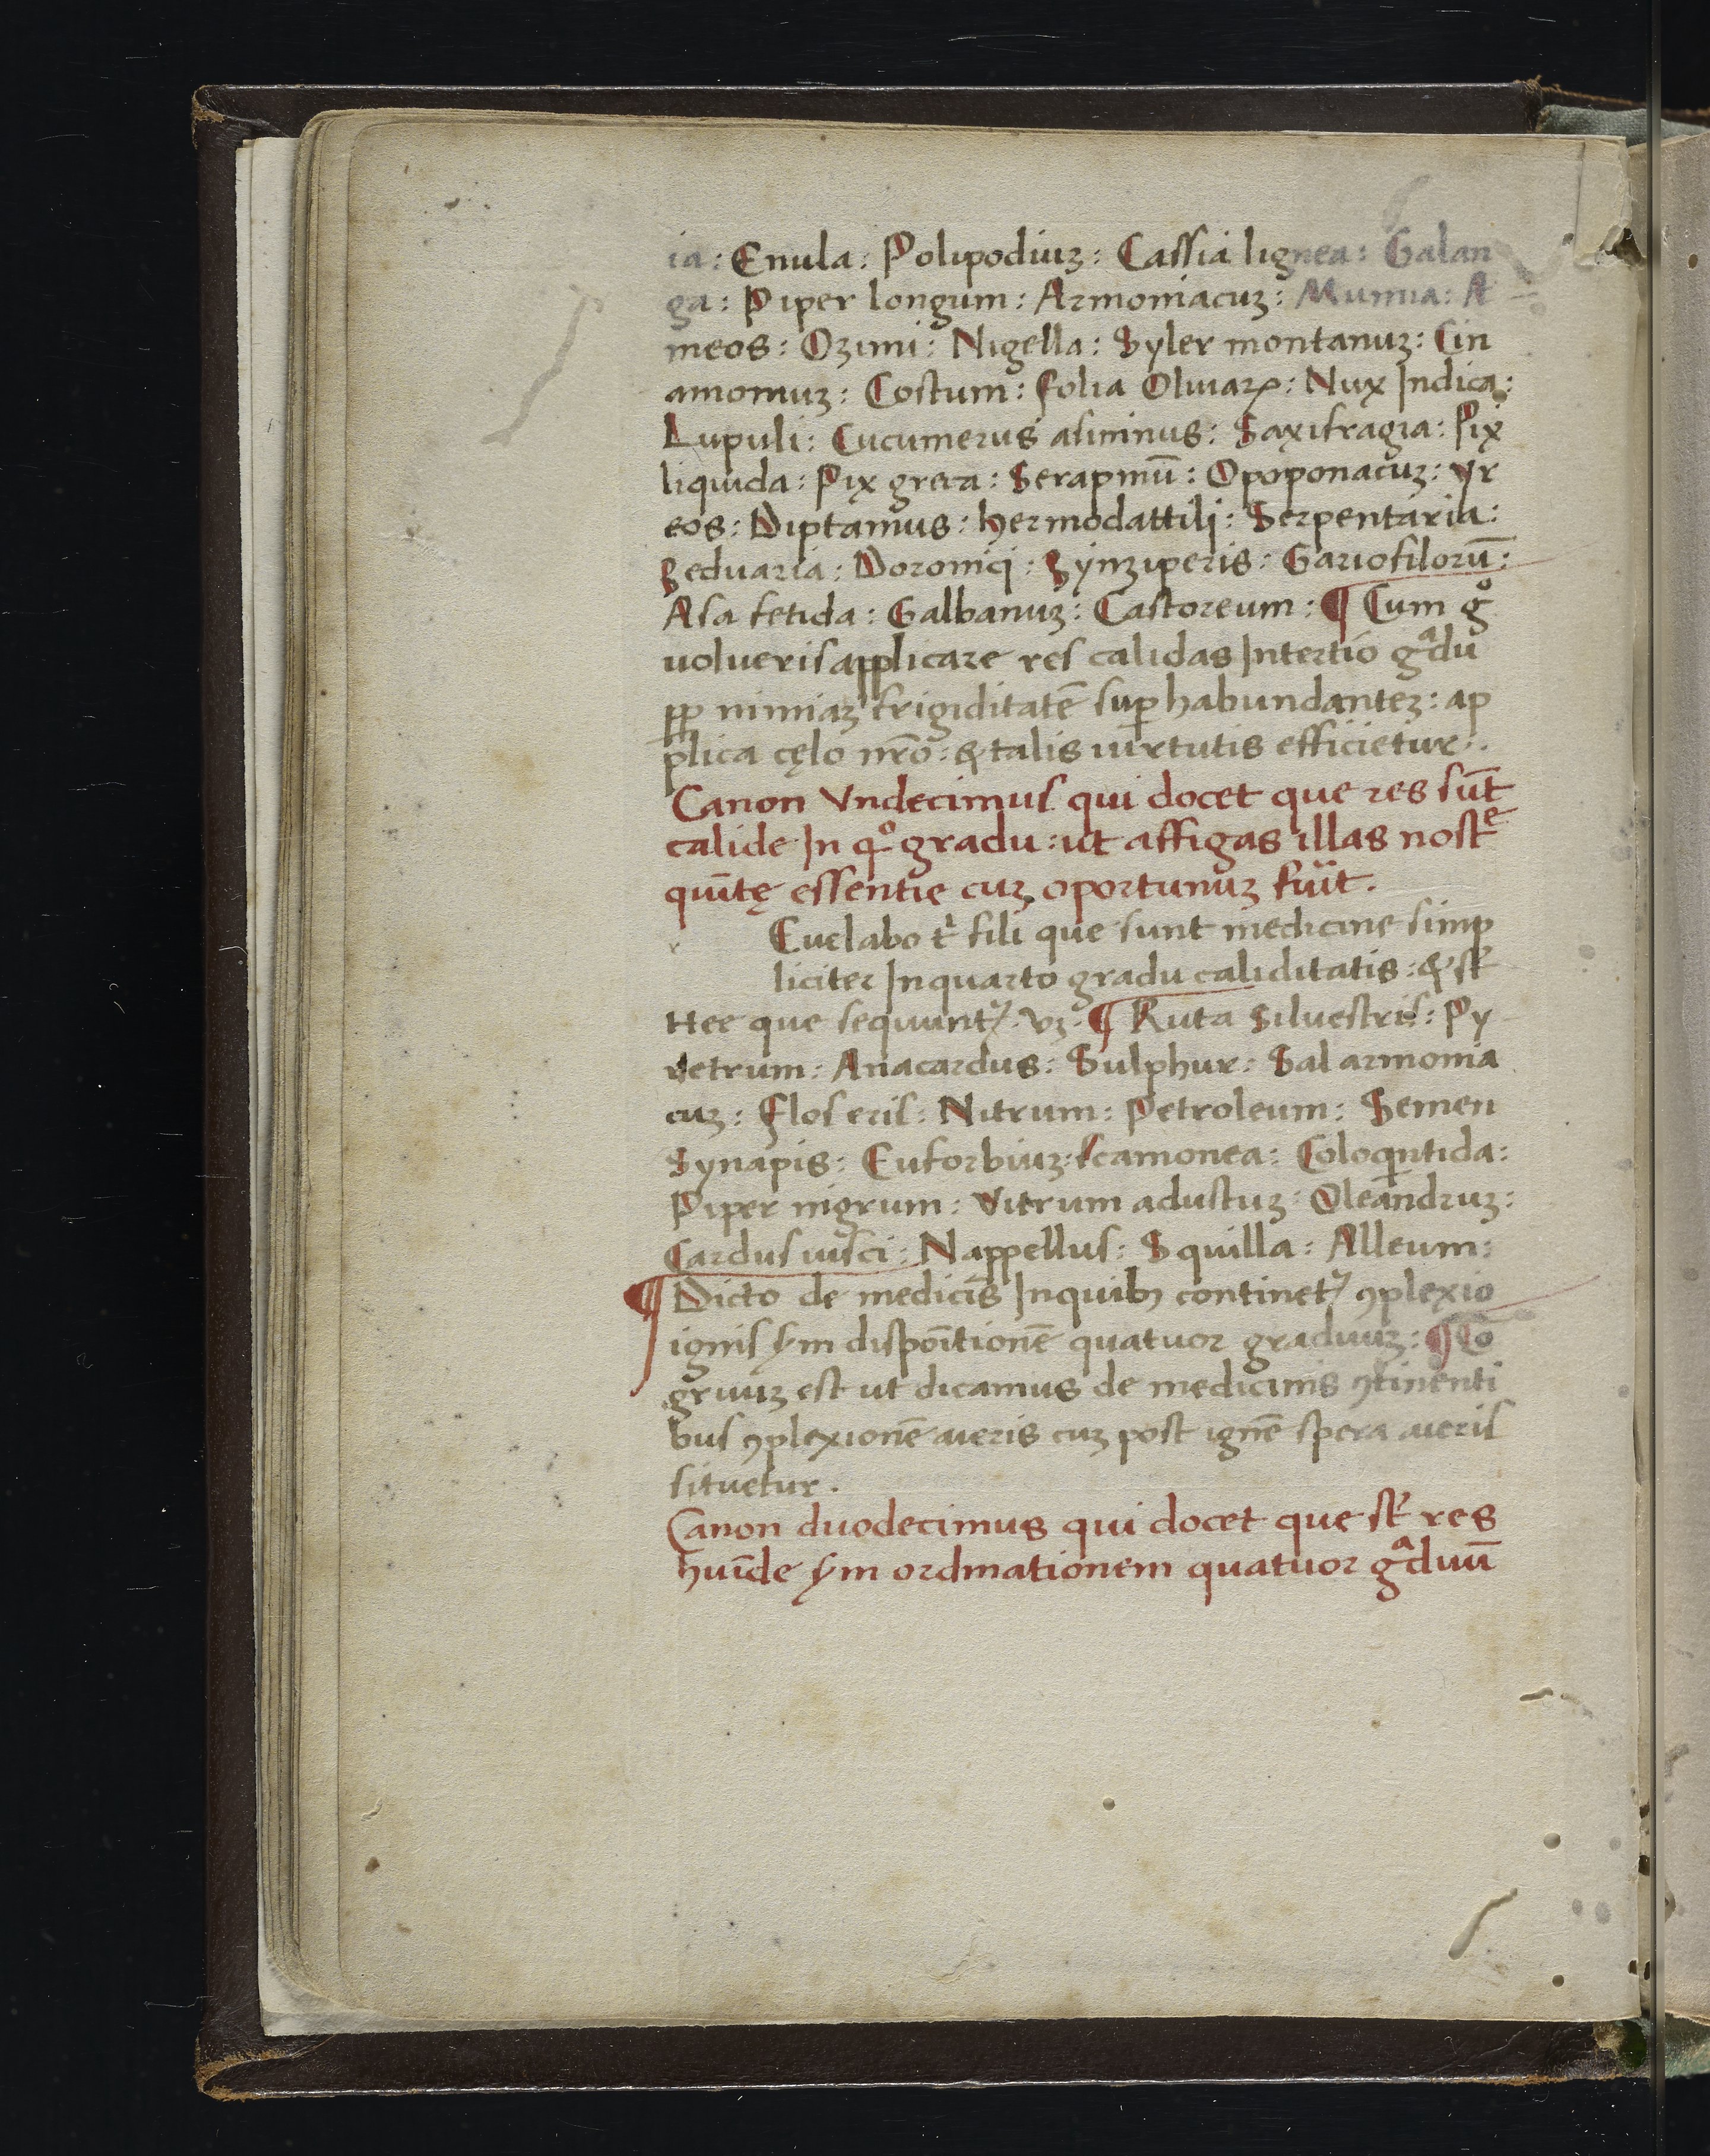 ia: Enula: Polipodiuꝫ: Cassia lignea: Galan
ga: Piper longum: Armoniacuꝫ: Mumia: A
meos: Ozimi: Nigella: Syler montanuꝫ: Cin
amomuꝫ: Costum: folia Oliuaꝝ: Nux Indica:
Lupuli: Cucumerus asininus: Saxifragia: Pix
liquida: Pix greca: Serapinū: Opoponacuꝫ: yr
eos: Diptamus: hermodattilj: Serpentaria:
Zeduaria: Doronicj: Zynziperis: Gariofilorū:
Asa fetida: Galbanuꝫ: Castoreum: ¶ Cum gͦ
uolueris applicare res calidas Intertio gͣdu
ꝓp nimiaꝫ frigiditatē suꝑhabundanteꝫ: ap
plica cęlo nr̄o: & talis uirtutis efficietur.
Canon Vndecimus qui docet que res sūt
calide In qͦ gradu: ut affigas illas nostͤ
quītę essentie cuꝫ oportunuꝫ fuīt.
Euelabo tͥ fili que sunt medicine simp
liciter Inquarto gradu caliditatis: & sť
Hee que sequunt᷑. vꝫ. ¶ Ruta Siluestris: Py
retrum: Anacardus: Sulphur: Sal armonia
cuꝫ: Flos eris: Nitrum: Petroleum: Semen
Synapis: Euforbiuꝫ: scamonea: Coloqͥntida:
Piper nigrum: Vitrum adustuꝫ: Oleandruꝫ:
Cardus uisci: Nappellus: Squilla: Alleum:
¶ Dicto de medicīs Inquibꝫ continet᷑ ꝯplexio
ignis ẜm dispoītionē quatuor graduuꝫ: ¶ Cō
gruuꝫ est ut dicamus de medicinis ꝯtinenti
bus ꝯplexionē aieris cuꝫ post ignē spera aieris
situetur.
Canon duodecimus qui docet que sť res
huīde ẜm ordinationem quatuor gͣduū